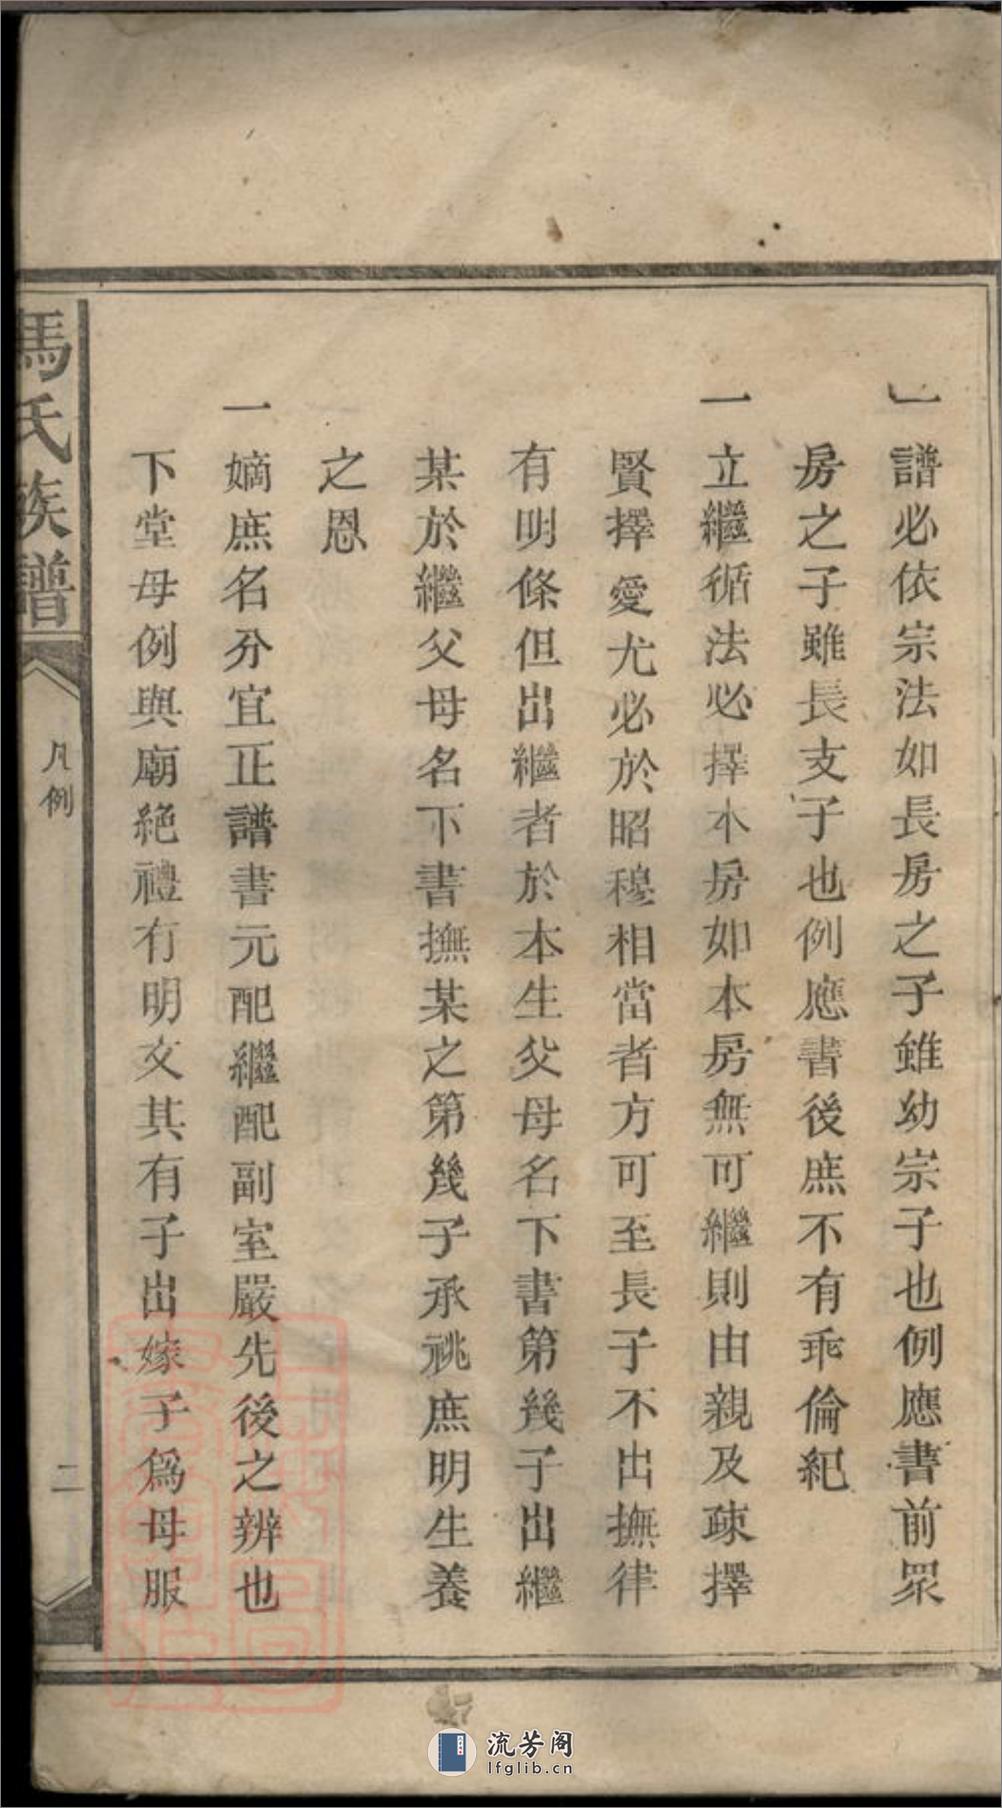 一譜必依宗法如長房之子雖幼宗子也例應書前眾
房之子雖長支子也例應書後庶不有乖倫紀
一立繼循法必擇本房如本房無可繼則由親及疎擇
賢擇愛尤必於昭穆相當者方可至長子不出撫律
有明條但出繼者於本生父母名下書第幾子出繼
某於繼父母名下書撫某之第幾子承祧庶明生養
之恩
一嫡庶名分宜正譜書元配繼配副室嚴先後之辨也
下堂母例與廟絶禮有明文其有子出嫁子爲母服
馬氏族譜
凡例
二
流芳阁
lfglib.cn